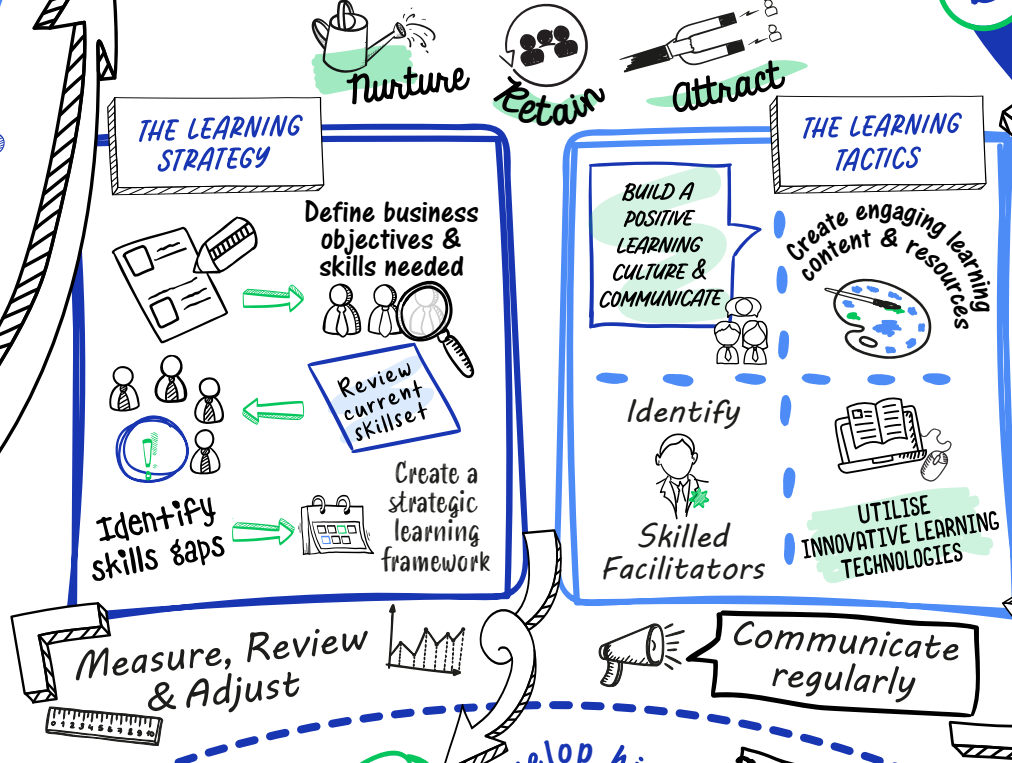 Nurture
Retain
Attract
THE LEARNING
STRATEGY
Define business
objectives &
skills needed
Review
current
skillset
Identify
skills gaps
Create a
strategic
learning
framework
THE LEARNING
TACTICS
BUILD A
POSITIVE
LEARNING
CULTURE &
COMMUNICATE
Create engaging learning
content & resources
Identify
Skilled
Facilitators
UTILISE
INNOVATIVE LEARNING
TECHNOLOGIES
Measure, Review
& Adjust
0 1 2 3 4 5 6 7 8 9 10
Communicate
regularly